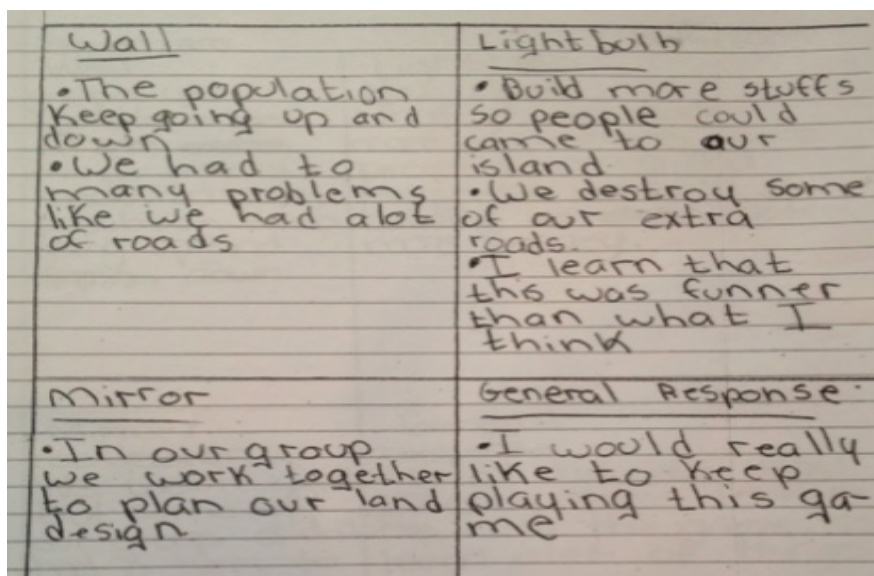 Wall
•The population
Keep going up and
down
•We had to
many problems
like we had alot
of roads
Lightbulb
•Build more stuffs
so people could
came to our
island
•We destroy some
of our extra
roads.
•I learn that
this was funner
than what I
think
Mirror
•In our group
we work together
to plan our land
design
General Response
•I would really
like to keep
playing this ga-
me